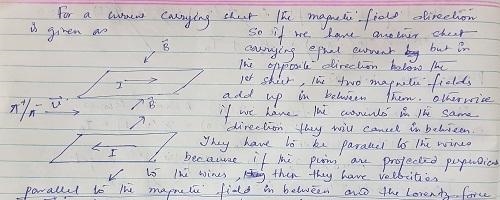 For a current carrying sheet the magnetic field direction
is given as
So if we have another sheet
carrying equal current but in
the opposite direction below the
1st sheet the two magnetic fields
add up in between them. Otherwise
if we have the currents in the same
direction they will cancel in between.
They have to be parallel to the wires
because if the pions are projected perpendicular
to the wires, then they have velocities
parallel to the magnetic field in between and the Lorentz force
B
I
π+/π- v
B
I